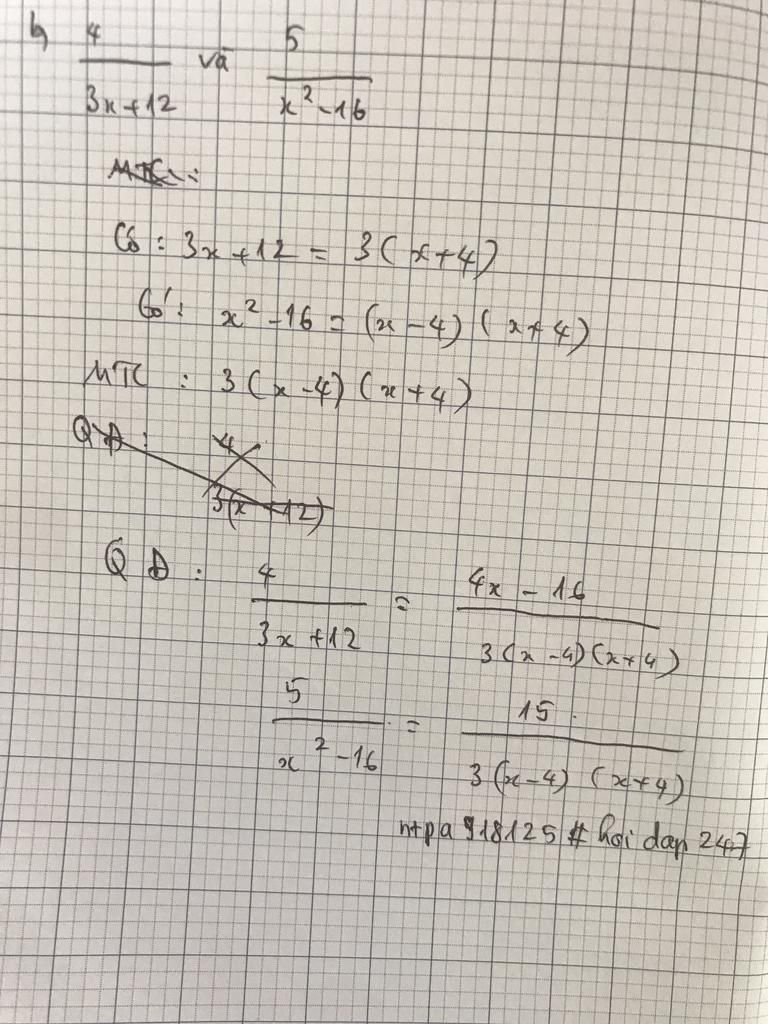 b) 4/(3x+12) và 5/(x²-16)
MTC:
Có: 3x+12 = 3(x+4)
Có: x²-16 = (x-4)(x+4)
MTC: 3(x-4)(x+4)
QĐ: 4/(3(x+12))
QĐ: 4/(3x+12) = (4x-16)/(3(x-4)(x+4))
5/(x²-16) = 15/(3(x-4)(x+4))
ntpa 918125 # hoi dap 247